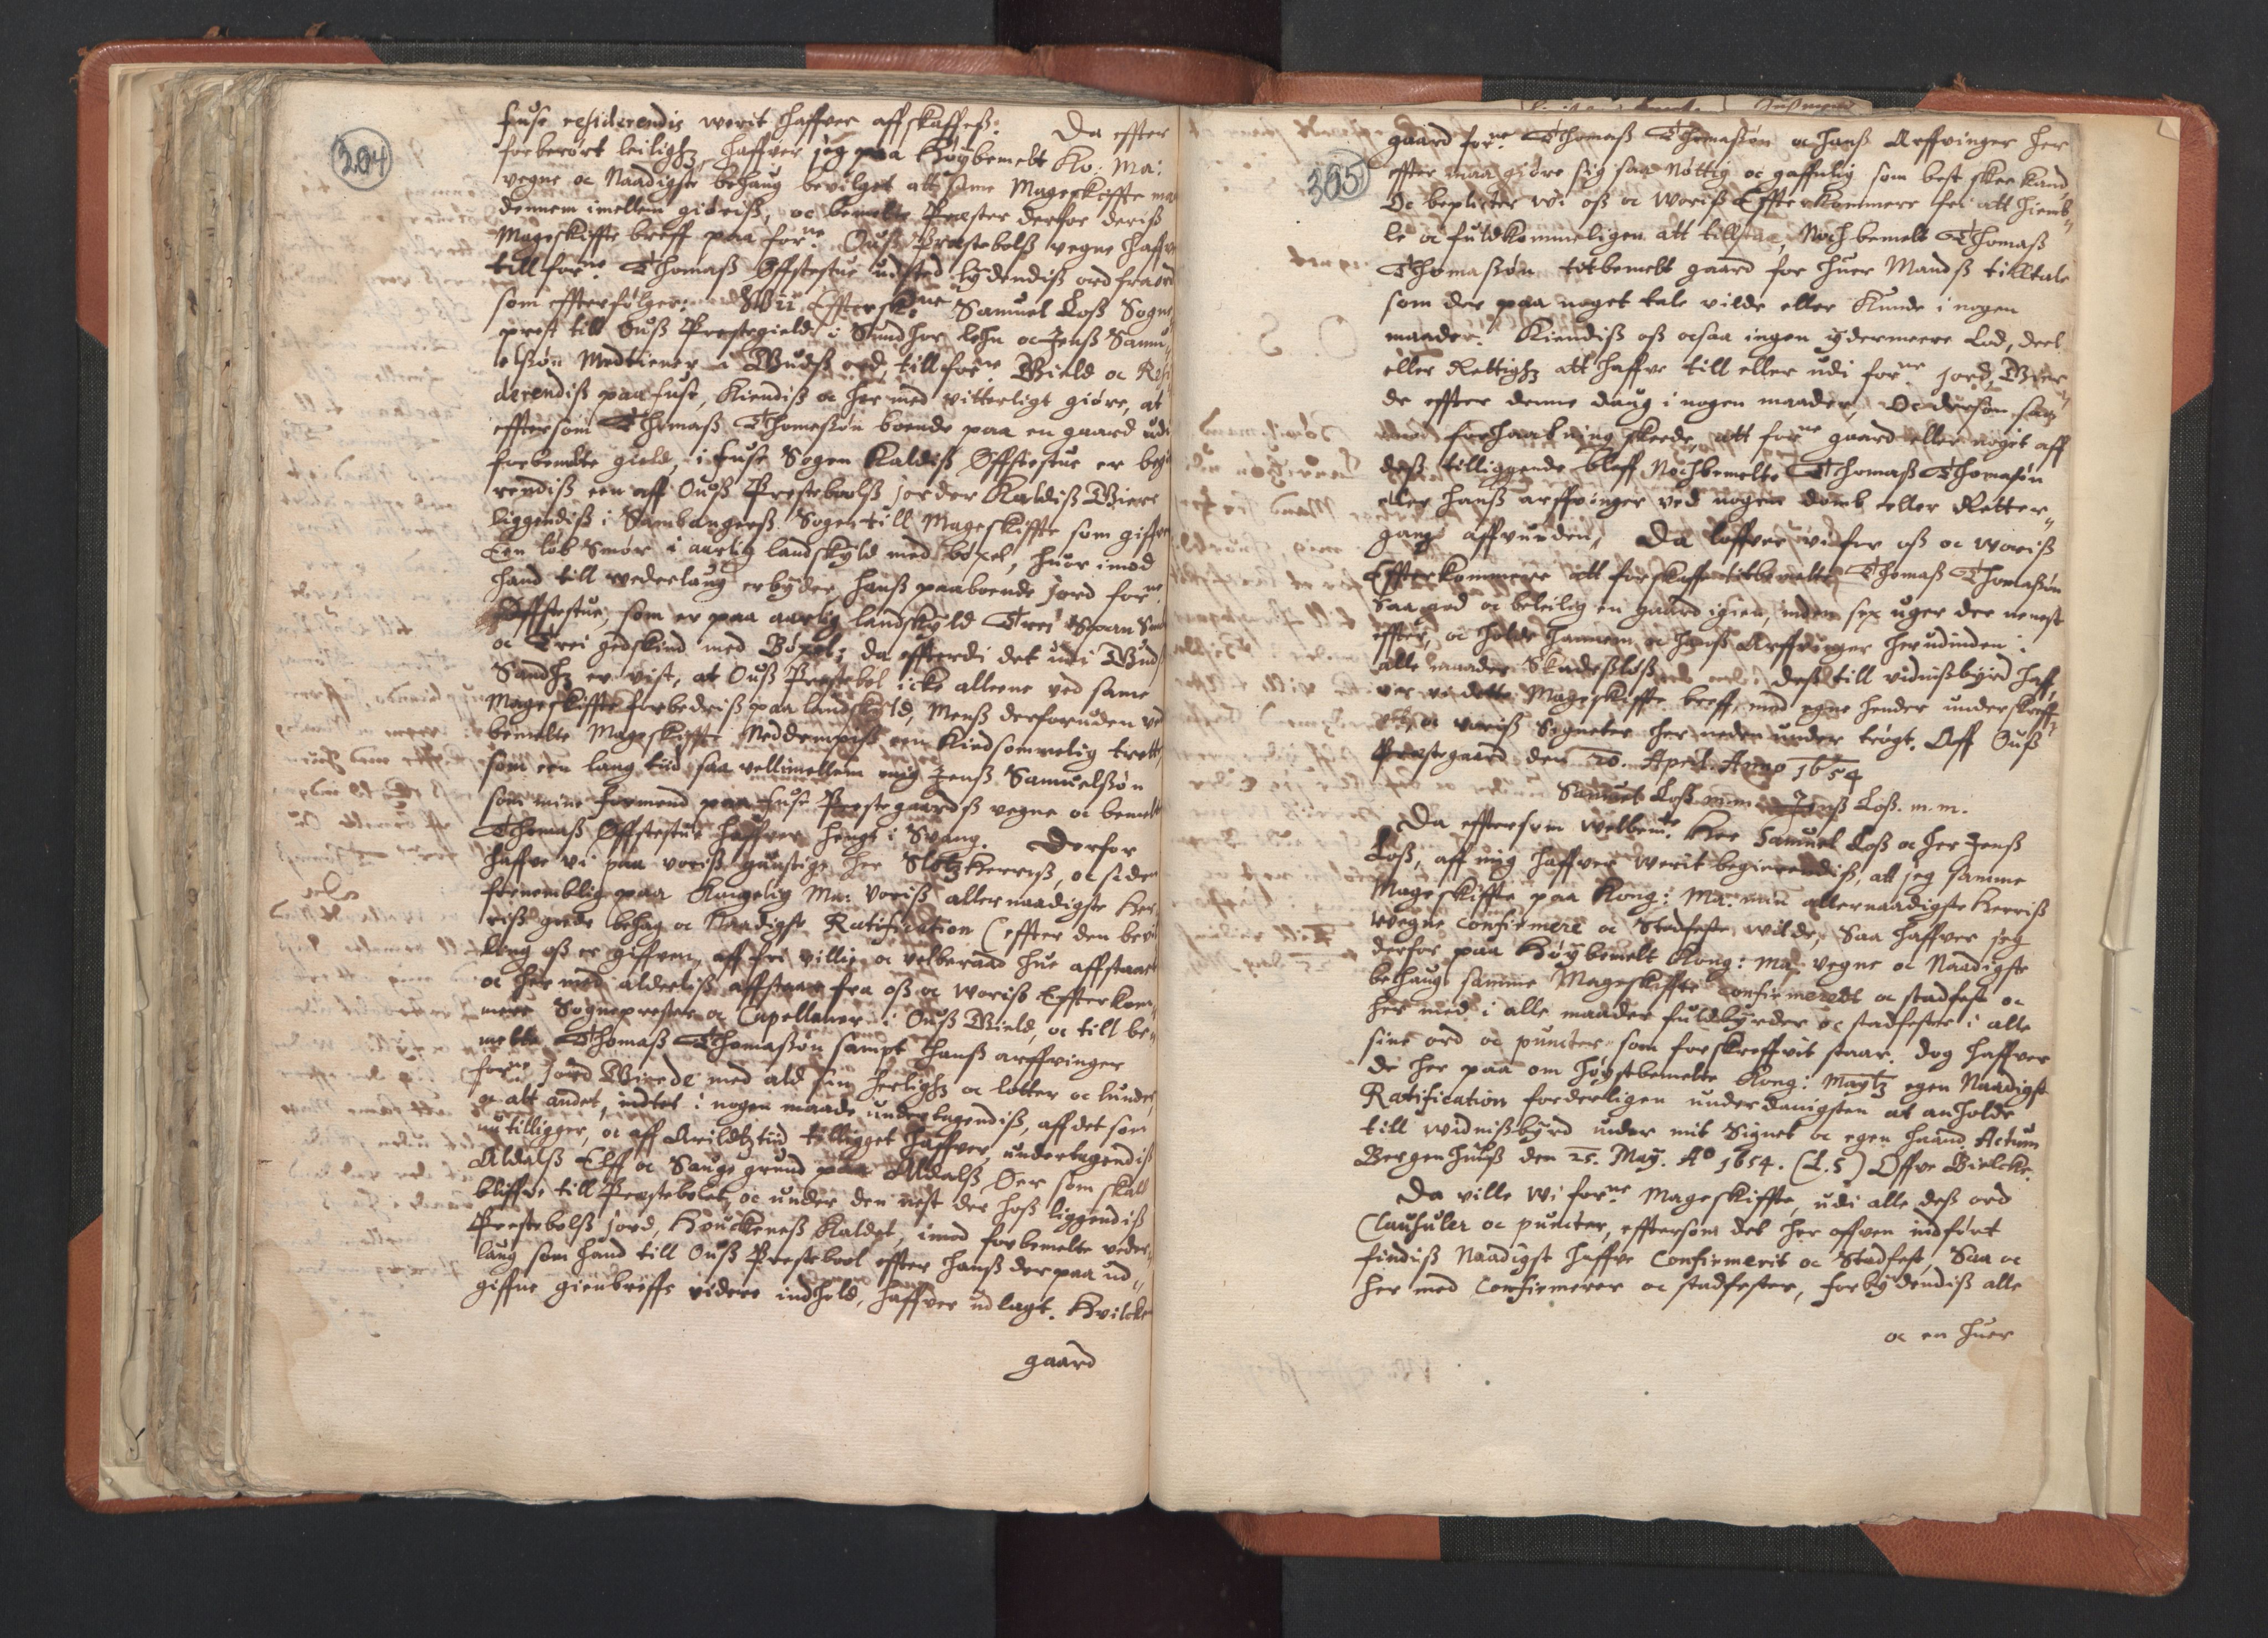 304
fuse residerendis werit haffver affskaffes: Da effter
forberørt leilighz, haffver jeg paa Høybemelt Ko: Ma:
vegne oc Naadigste behaug bevilget att same Mageskiffte maa
dennem imellem giøriß, oc bemelte Prester derfor deriß
Mageskiffte breff paa forne Ouß Prestebolß vegne haffver
till forne Thomaß Øffstestue udsted lydendiß ord fra ord
som effterfølger: Wii Effterskne Samuel Loß Sogne
prest till Ouß Prestegield i Sundhor Lehn oc Jenß Samu„
elßøn Medtiener i Gudß ord till forne Gield oc Resi
derendiß paa fuse, Kiendiß oc her med vitterligt giøre, at
efftersom Thomaß Thomeßøn boende paa en gaard udi
forbemelte gield, i fuse Sogen Kaldiß Øffstestue er begie
rendiß een aff Ouß Presteboelß jorder Kaldiß Giere
liggendiß i Sambangerß Sogen till Mageskiffte som giffver
Een løb Smør i aarlig landskyld med bøxel, huor imod
hand till wederlaug erbyder hanß paaboende jord forne
Øffstestue, som er paa aarlig landskyld Trei Spann Smør
oc Trei gedskind med Bøxel; da effterdi det udi Gudß
Sandhz er vist, at Ouß Prestebol icke alleene ved same
Mageskiffte forbedriß paa landskyld, Menß derforuden ved
bemelte Mageskiffte Neddempiß een Kiedsommelig trette
som een lang tiid saa vell imellem mig Jenß Samuelßøn
som mine formend paa fuse Prestegaardß vegne oc bemelte
Thomaß Øffstestue haffver hengt i Svang. Derfor
haffve vi paa voriß gunstige her Slotz Herriß, oc siden
fornemblig paa Kongelig Ma: voriß allernaadigste Her„
riß gode behag oc Naadigst Ratification (effter den bevil
ling oß er giffven, aff fri villie oc velberaad hue affstaaet
oc her med alderliß affstaar fra oß oc woriß Effterkom„
mere Sogneprester oc Capellaner i Ouß Gield, oc till be„
melte Thomaß Thomaßøn sampt hanß arffvinger
forne Jord Gierde med ald sin herlighz oc lotter oc lunder,
oc alt andet, indtet i nogen maade undertagendiß, aff det som
nu tilligger, oc aff Arildtz tiid tilligget haffver, undertagendiß
Aldalß Elff oc Sauge grund paa Aldalß Øer som skall
bliffve till Prestebolet, oc under den nest der hoß liggendiß
Prestebolß jord, Houckeneß Kaldet, imod forbemelte veder„
laug som hand till Ouß Presteboel effter hanß der paa ud„
giffne gienbreffs videre indhold, haffver udlagt. Hvilcke
gaard
305
gaard forne Thomaß Thomaßøn oc hanß Arffvinger her
effter maa giøre sig saa nøttig oc gaffnlig som best skee kand
Oc beplicter wi oß oc woriß Effterkommere frii att hiemb„
le oc fuldkommeligen att tillstaa, Nochbemelt Thomaß
Thomaßøn totbemelt gaard for huer Mandß tilltale
som der paa noget tale vilde eller Kunde i nogen
maader. Kiendiß oß ocsaa ingen ydermeere Lod, deel
eller Rettighz att haffve till eller udi forne jord Gier„
de effter denne daug i nogen maader, Oc dersom saa
forhaabning skeede, att forne gaard eller noget aff
deß tilliggende bleff Nochbemelte Thomaß Thomaßøn
eller hanß arffvinger ved nogen domb eller Retter„
gang affvunden, Da loffver vi for oß oc woriß
Effterkommere att forskaffe titbemelte Thomaß Thomaßøn
Saa god oc beleilig en gaard igien, inden sex uger der nenest
effter, oc holde hannem oc hanß Arffvinger herudinden i
alle maader Skadeßløß, Deß till vidnißbyrd haff„
ver vi dette Mageskiffte breff med egne hender underskreff„
vit, oc voriß Signeter her neden under trøgt. Aff Ouß
Prestegaard den 20. April Anno 1654
Samuel Loß mm. Jenß Loß. m.m.
Da efftersom Welbemte Her Samuel Loß oc Her Jenß
Loß, aff mig haffver werit begierendiß, att jeg samme
Mageskiffte paa Kong: Ma: min allernaadigste Herriß
wegne confirmere oc Stedfeste wilde, Saa haffver jeg
derfor paa Høybemelt Kong: Ma: vegne oc Naadigste
behaug samme Mageskiffte confirmeret oc stadfest oc
her med i alle maader fuldbyrder oc stadfester i alle
sine ord oc puncter som forskreffvit staar. Dog haffver
de her paa om Høystbemelte Kong: Maytz egen Naadigst
Ratification forderligen underdanigsten at anholde
till widnißbyrd under mit Signet oc egen haand. Actum
Bergenhuuß den 25. May. Ao 1654. (L.S) Offve Bielcke.
Da ville wi forne Mageskiffte, udi alle deß ord
Clausuler oc puncter, efftersom det her offven indført
findiß Naadigst haffve Confirmerit oc Stadfest, Saa oc
her med Confirmerer oc stadfester, forbydendiß alle
oc en huer